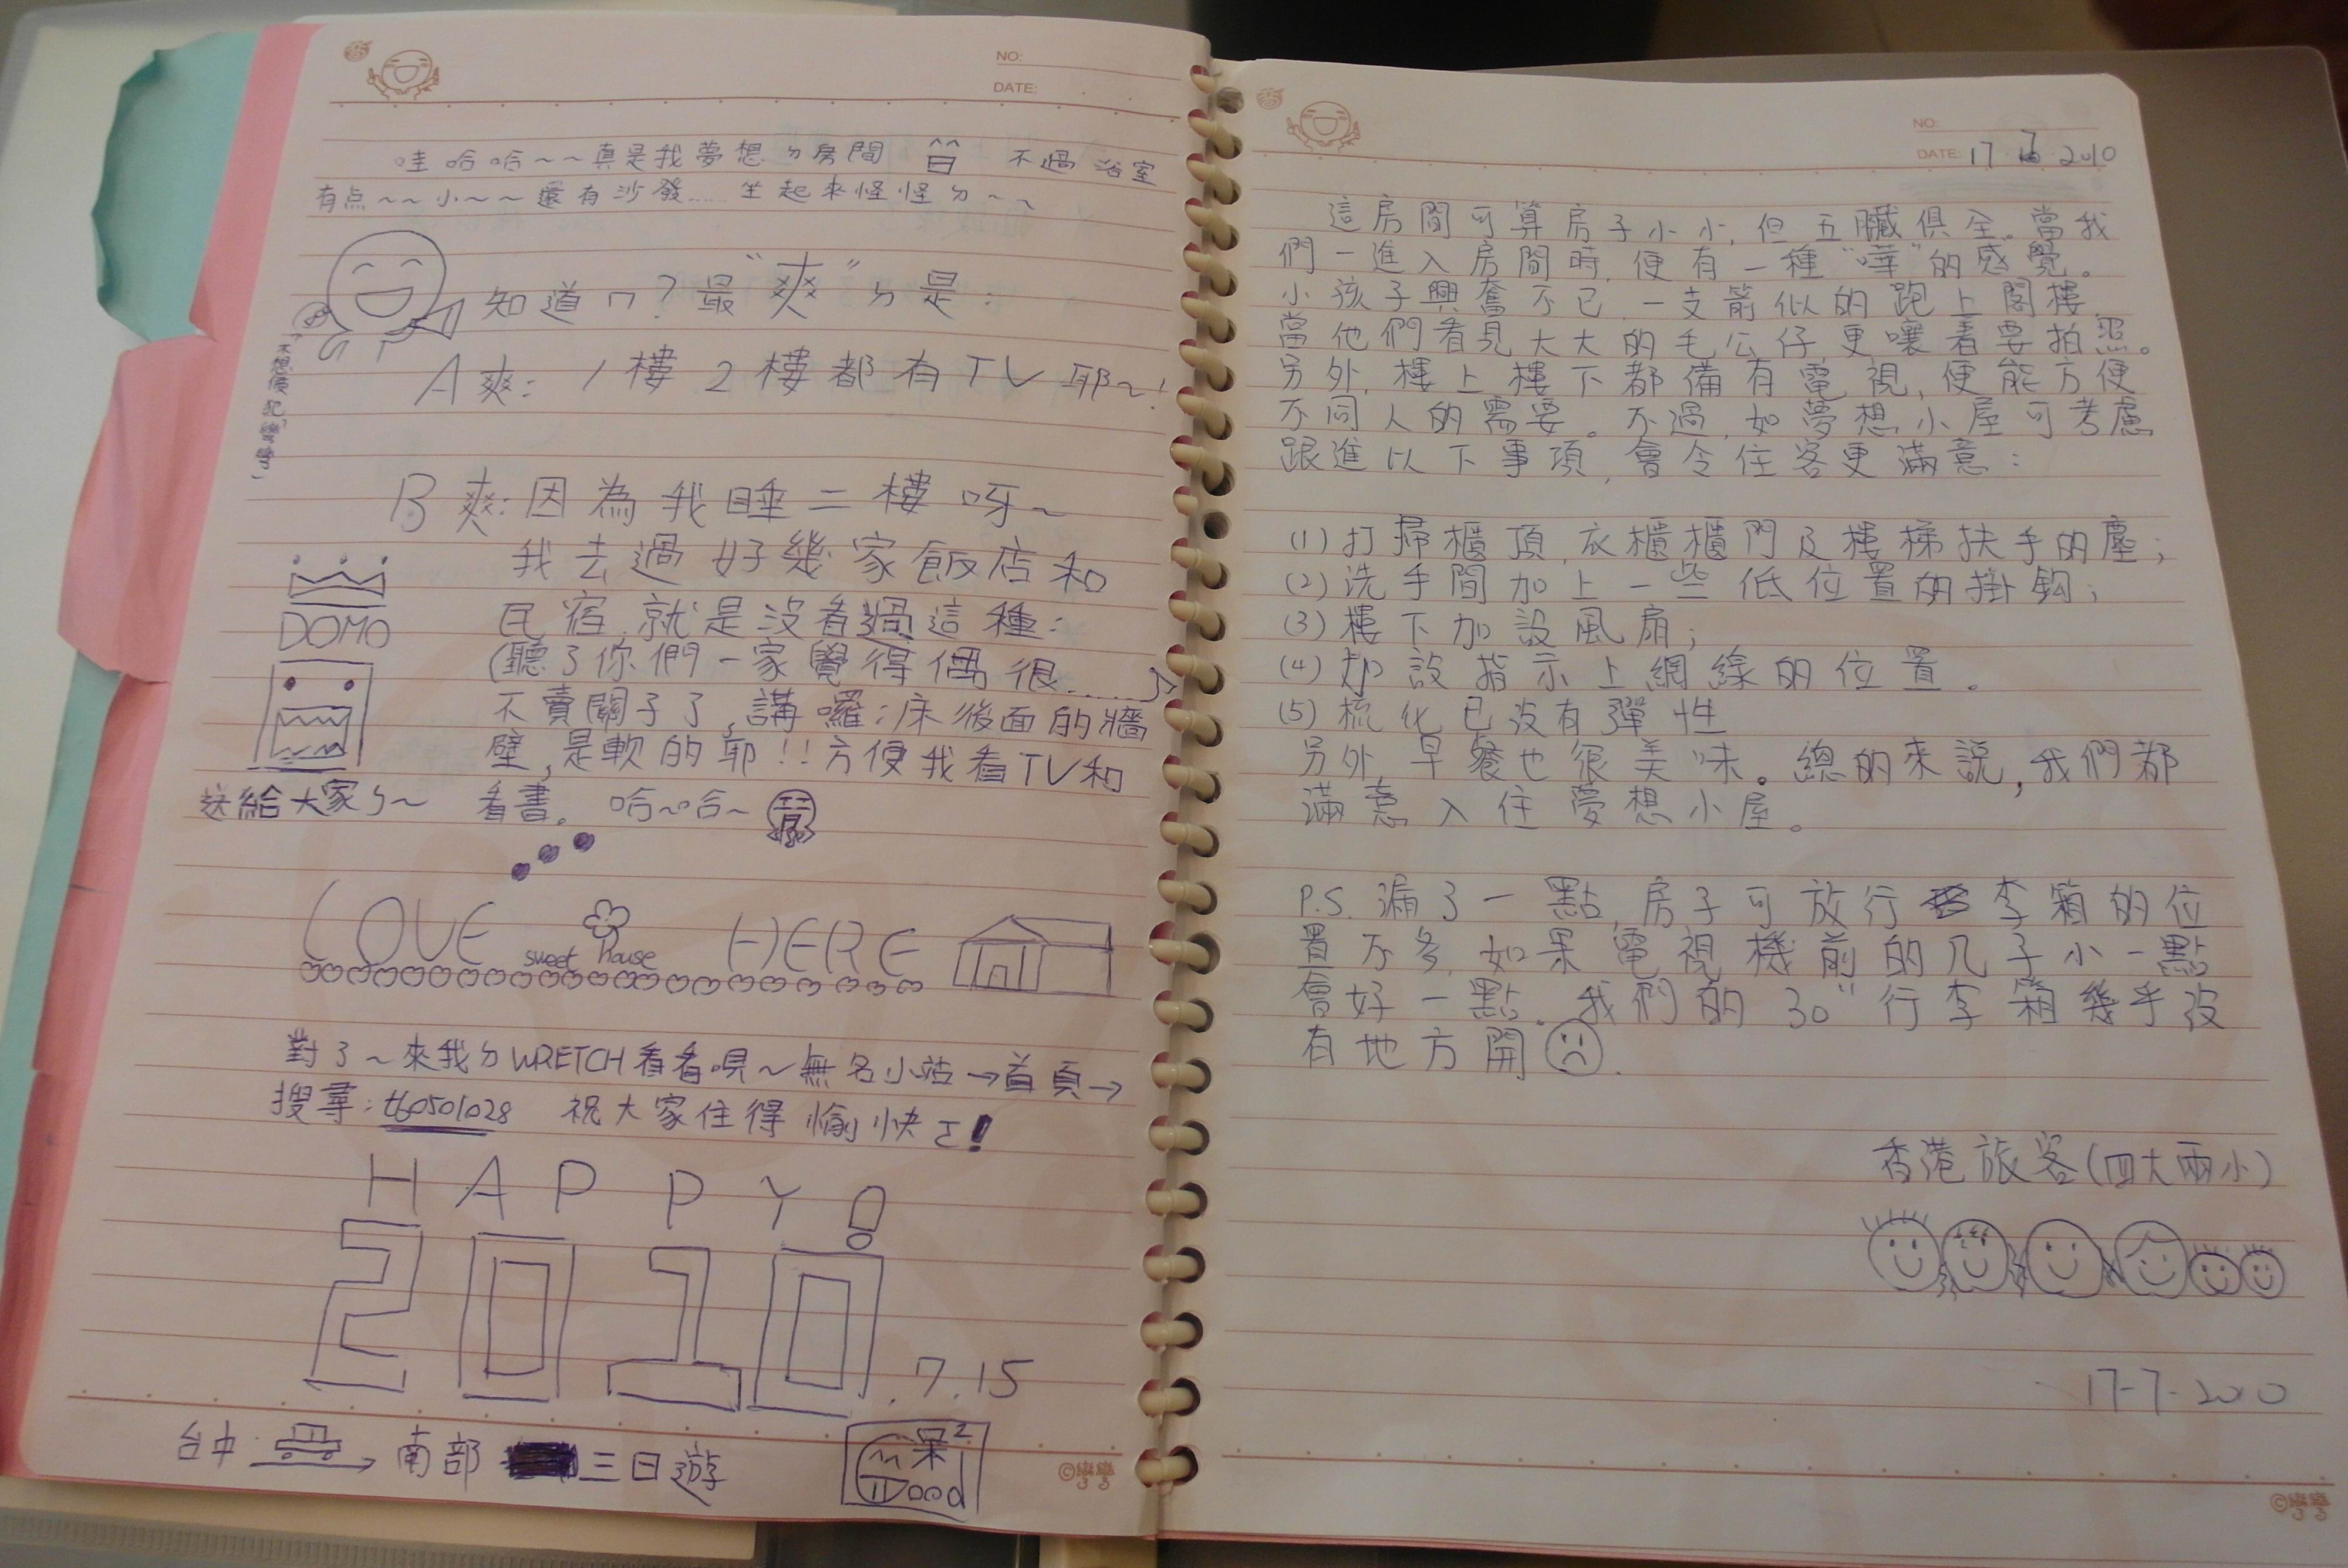 NO:
DATE:
哇哈哈~~真是我夢想ㄉ房間 不過浴室
有点~~小~~還有沙發…… 坐起來怪怪ㄉ~~
知道ㄇ?最"爽"ㄉ是:
A爽: 1樓2樓都有TV耶~!
B爽:因為我睡二樓呀~
我去過好幾家飯店和
民宿,就是沒看過這種:
(聽了你們一家覺得偶很……)
不賣關子了,講囉:床後面的牆
壁,是軟的耶!!方便我看TV和
看書。哈~哈~
DOMO
送給大家ㄉ~
LOVE sweet house HERE
對了~來我ㄉWRETCH看看唄~無名小站→首頁→
搜尋:t60501028 祝大家住得愉快ㄛ!
HAPPY!
2010.7.15
台中 → 南部 三日遊
呆² Good
©彎彎
NO:
DATE: 17 7 2010
這房間可算房子小小,但五臟俱全。當我
們一進入房間時,便有一種"嘩"的感覺。
小孩子興奮不已,一支箭似的跑上閣樓,
當他們看見大大的毛公仔更嚷着要拍照。
另外,樓上樓下都備有電視,便能方便
不同人的需要。不過,如夢想小屋可考慮
跟進以下事項,會令住客更滿意:
(1)打掃櫃頂,衣櫃櫃門及樓梯扶手的塵;
(2)洗手間加上一些低位置的掛鈎;
(3)樓下加設風扇;
(4)加設指示上網線的位置。
(5)梳化已沒有彈性
另外,早餐也很美味。總的來說,我們都
滿意入住夢想小屋。
P.S. 漏了一點,房子可放行李箱的位
置不多,如果電視機前的几子小一點
會好一點。我們的30"行李箱幾乎沒
有地方開.
香港旅客(四大兩小)
17-7-2010
©彎彎